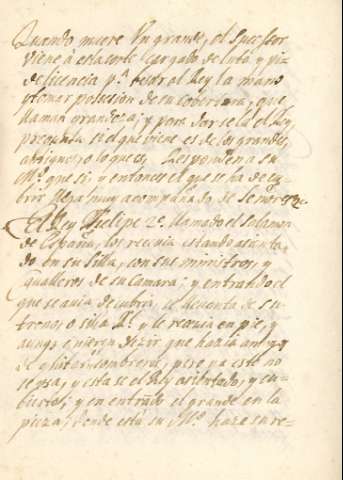 Quando muere Un grande, el Successor
viene à esta corte cargado de luto, y pi-
de licencia p.ª besar al Rey la mano
y tomar posesion de su cobertura, que
llaman grandeza; y para dar sela el Rey,
pregunta si el que viene es de los grandes
antiguos, o lo que es, Responden a su
M.d que si, y entonces el que se ha de cu-
brir llega muy acompañado de Señores.
El Rey Phelipe 2.º llamado el Salamon
de España, los recivia estando asenta-
do en su silla, con sus ministros, y
Cavalleros de su Camara; y entrando el
que se avia de cubrir, se levanta de su
trono, o silla R.l y le recivia en pie, y
aunq quieren dezir que hazia
de quitar sombrero, pero ya esto no
se usa, y esta se el Rey asientado, y cu-
bierto; y en entrãdo el grande en la
pieza, donde está su M.d haze su re-